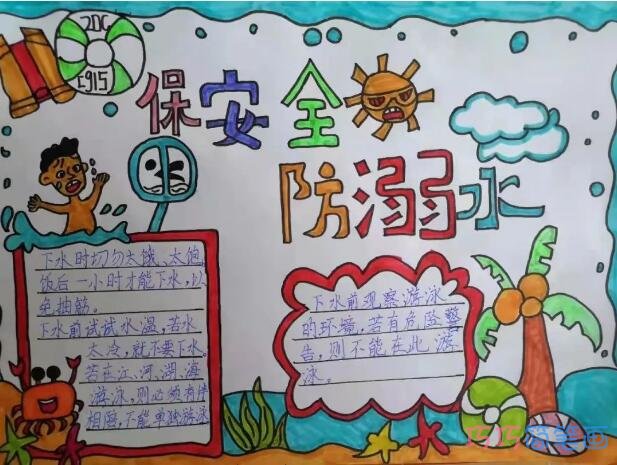 20G
C915
保安全
防溺水
下水时切勿太饿、太饱,
饭后一小时才能下水,以
免抽筋。
下水前试试水温,若水
太冷,就不要下水。
若在江、河、湖、海
游泳,则必须有伴
相海,不能单独游泳
下水前观察游泳
的环境,若有危险警
告,则不能在此游
泳。
巧巧简笔画